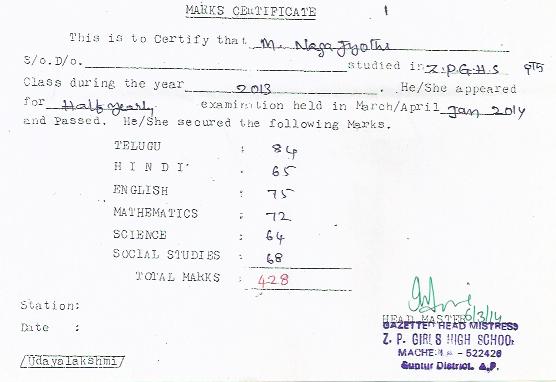 MARKS CERTIFICATE
This is to Certify that M. Naga Jyothi
S/o.D/o. studied in Z.P.G.H.S
Class during the year 2013 . He/She appeared
for Half yearly examination held in March/April Jan 2014
and Passed. He/She secured the following Marks.
TELUGU : 84
HINDI . 65
ENGLISH : 75
MATHEMATICS : 72
SCIENCE : 64
SOCIAL STUDIES : 68
TOTAL MARKS : 428
Station:
Date :
6/3/14
HEAD MASTER
GAZETTED HEAD MISTRESS
Z. P. GIRLS HIGH SCHOOL
- 522426
Guntur District. A.P.
/Udayalakshmi/